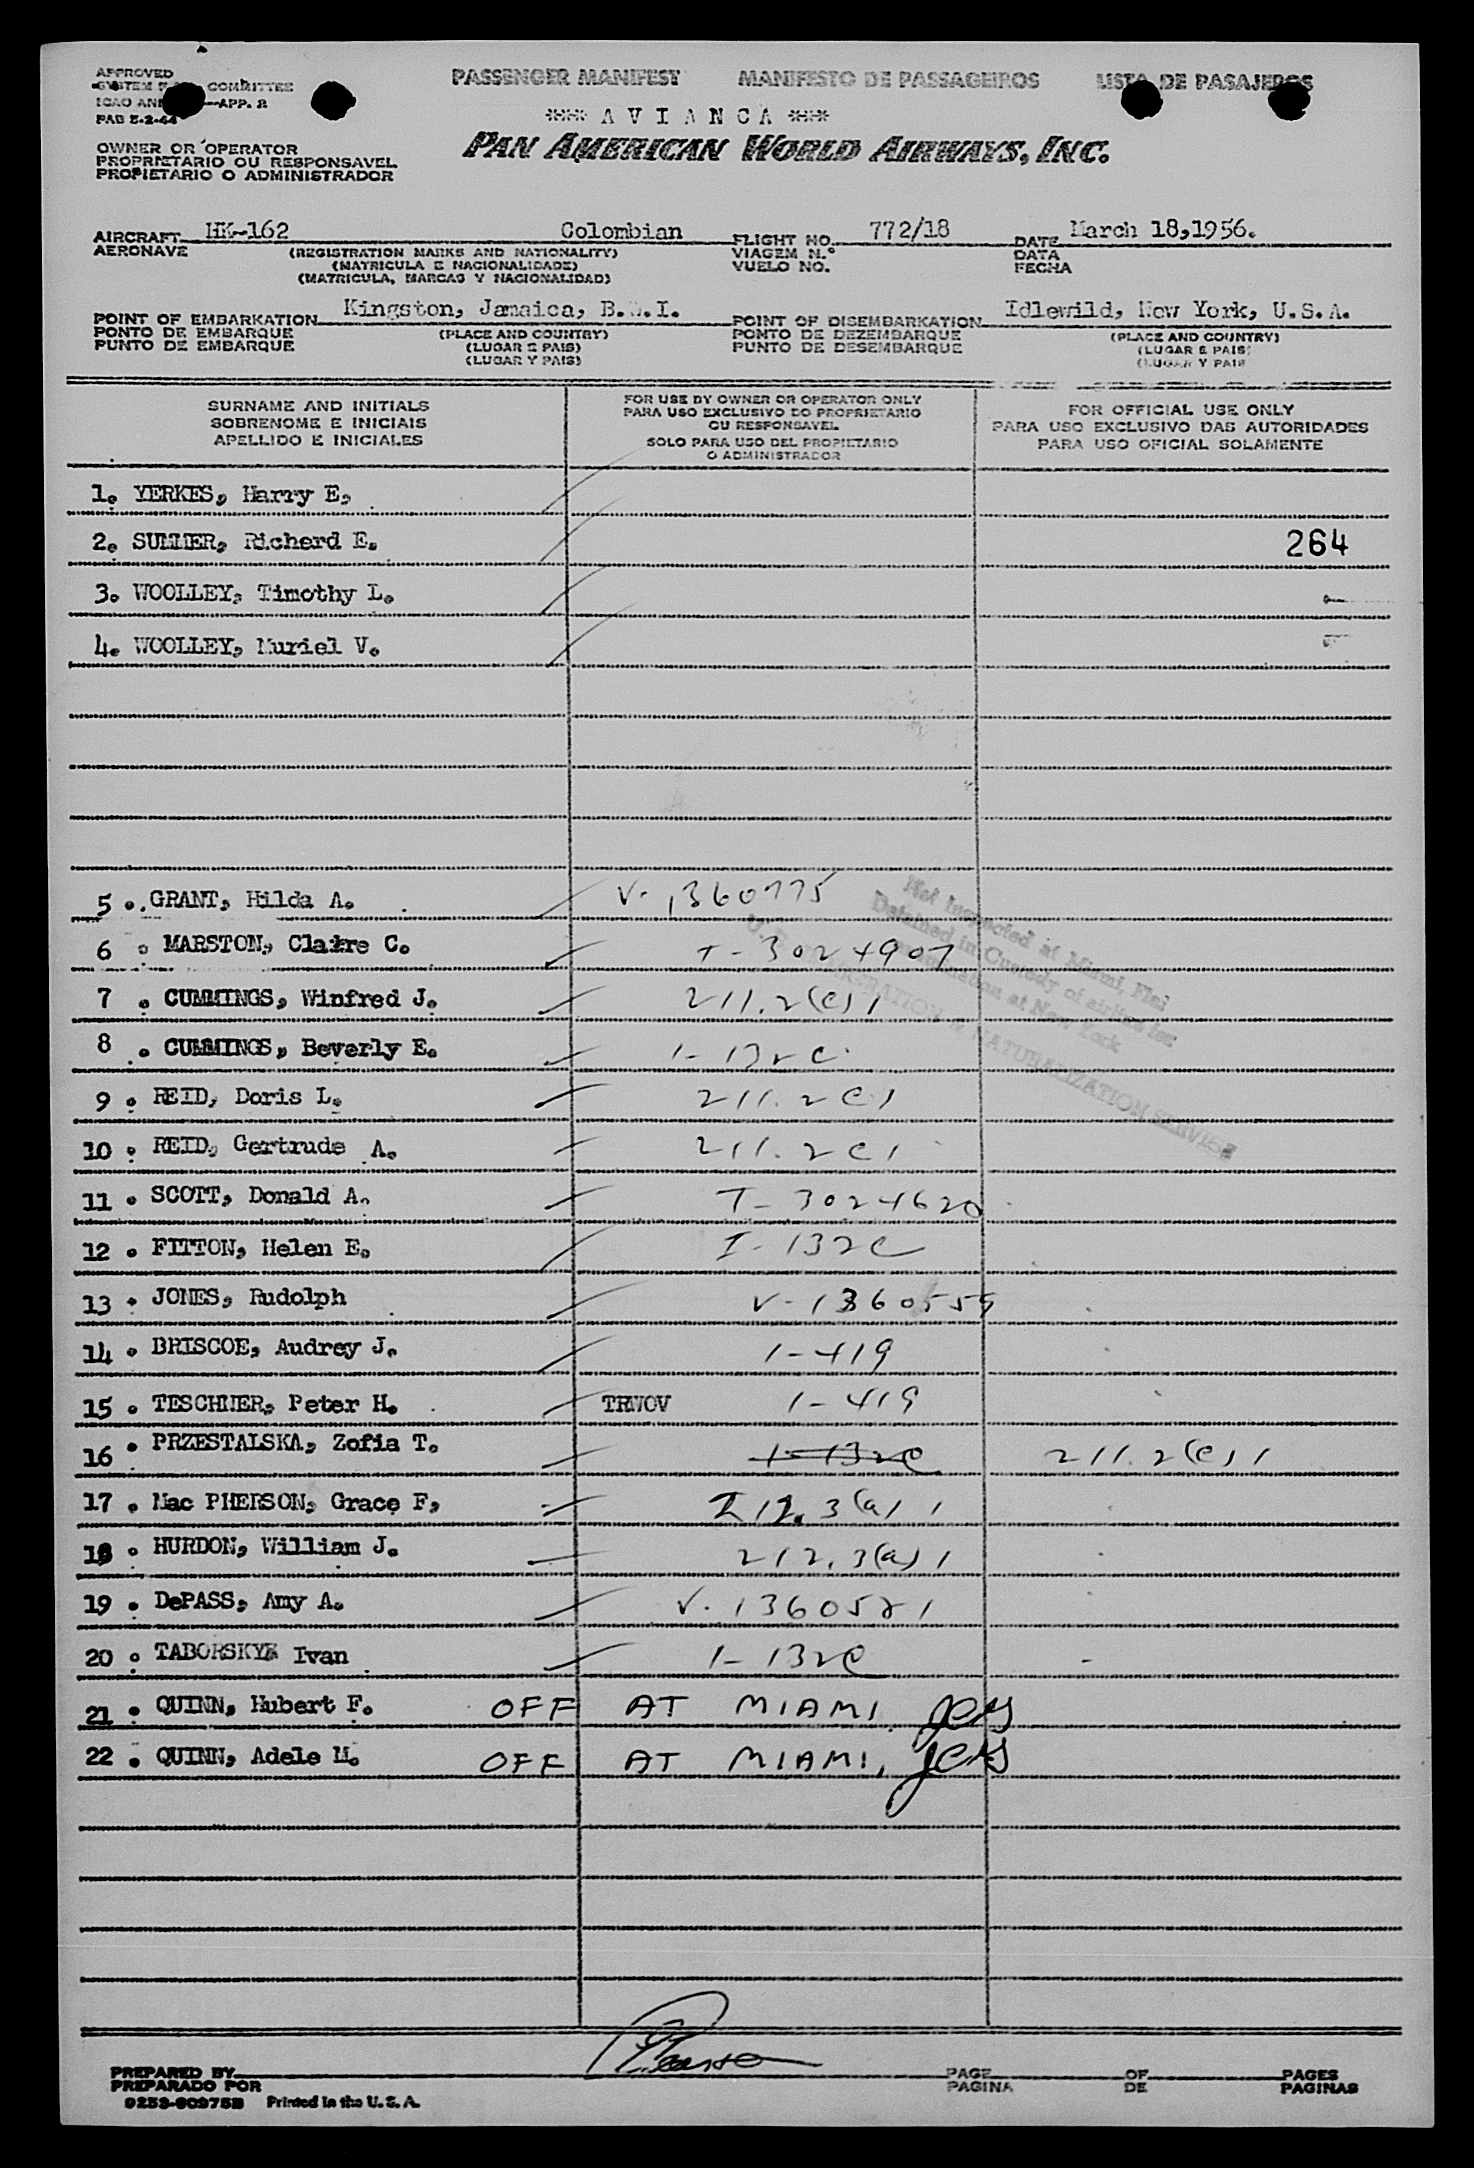 APPROVED
COMMITTEE
APP. 2
PAB 5-2-44
PASSENGER MANIFEST MANIFESTO DE PASSAGEIROS LISTA DE PASAJEROS
*** A V I A N C A ***
PAN AMERICAN WORLD AIRWAYS, INC.
OWNER OR OPERATOR
PROPRIETARIO OU RESPONSAVEL
PROPIETARIO O ADMINISTRADOR
AIRCRAFT HK-162 Colombian FLIGHT NO. 772/18 DATE March 18,1956.
AERONAVE (REGISTRATION MARKS AND NATIONALITY) VIAGEM N.° DATA
(MATRICULA E NACIONALIDADE) VUELO NO. FECHA
(MATRICULA, MARCAS Y NACIONALIDAD)
POINT OF EMBARKATION Kingston, Jamaica, B.W.I. POINT OF DISEMBARKATION Idlewild, New York, U.S.A.
PONTO DE EMBARQUE (PLACE AND COUNTRY) PONTO DE DEZEMBARQUE (PLACE AND COUNTRY)
PUNTO DE EMBARQUE (LUGAR E PAIS) PUNTO DE DESEMBARQUE (LUGAR E PAIS)
(LUGAR Y PAIS) (LUGAR Y PAIS
SURNAME AND INITIALS
SOBRENOME E INICIAIS
APELLIDO E INICIALES
FOR USE BY OWNER OR OPERATOR ONLY
PARA USO EXCLUSIVO DO PROPRIETARIO
OU RESPONSAVEL
SOLO PARA USO DEL PROPIETARIO
O ADMINISTRADOR
FOR OFFICIAL USE ONLY
PARA USO EXCLUSIVO DAS AUTORIDADES
PARA USO OFICIAL SOLAMENTE
1. YERKES, Harry E.
2. SUMMER, Richerd E. 264
3. WOOLLEY, Timothy L.
4. WOOLLEY, Muriel V.
5 . GRANT, Hilda A. V-1360775
6 . MARSTON, Claire C. T-3024907
7 . CUMMINGS, Winfred J. 211.2(c)1
8 . CUMMINGS, Beverly E. 1-132c
9 . REID, Doris L. 211.2c1
10 . REID, Gertrude A. 211.2c1
11 . SCOTT, Donald A. T-3024620
12 . FITTON, Helen E. I-132c
13 . JONES, Rudolph V-1360559
14 . BRISCOE, Audrey J. 1-419
15 . TESCHNER, Peter H. TRWOV 1-419
16 . PRZESTALSKA, Zofia T. 1-132c 211.2(c)1
17 . Mac PHERSON, Grace F. 212.3(a)1
18 . HURDON, William J. 212.3(a)1
19 . DePASS, Amy A. V-1360521
20 . TABORSKY Ivan 1-132c
21 . QUINN, Hubert F. OFF AT MIAMI, JCM
22 . QUINN, Adele M. OFF AT MIAMI, JCM
Not Inspected at Miami, Fla.
Detained in Custody of airline for
examination at New York
U. S. IMMIGRATION & NATURALIZATION SERVICE
PREPARED BY PAGE OF PAGES
PREPARADO POR PAGINA DE PAGINAS
9253-609752 Printed in the U. S. A.